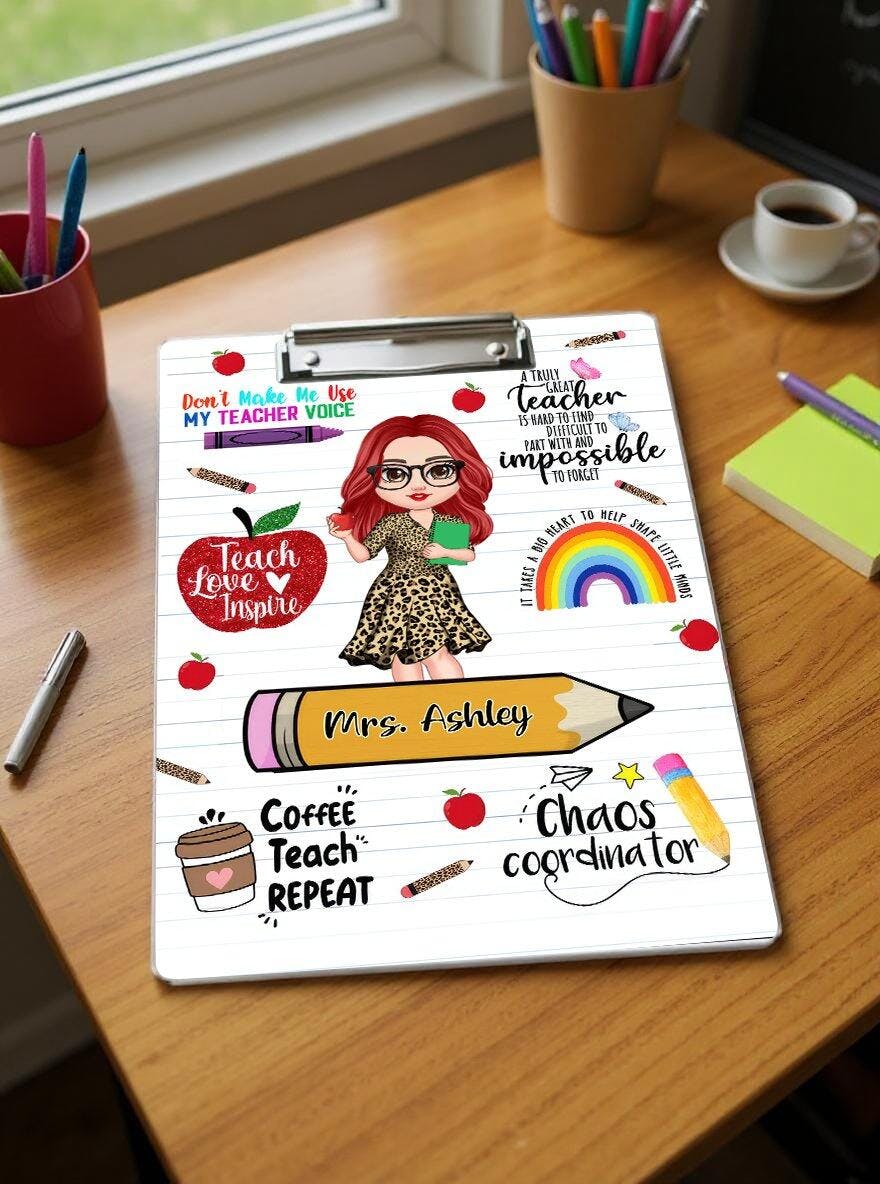 Don't Make Me Use
MY TEACHER VOICE
A TRULY
GREAT
teacher
IS HARD TO FIND
DIFFICULT TO
PART WITH AND
impossible
TO FORGET
Teach
Love
Inspire
IT TAKES A BIG HEART TO HELP SHAPE LITTLE MINDS
Mrs. Ashley
COFFEE
Teach
REPEAT
Chaos
coordinator